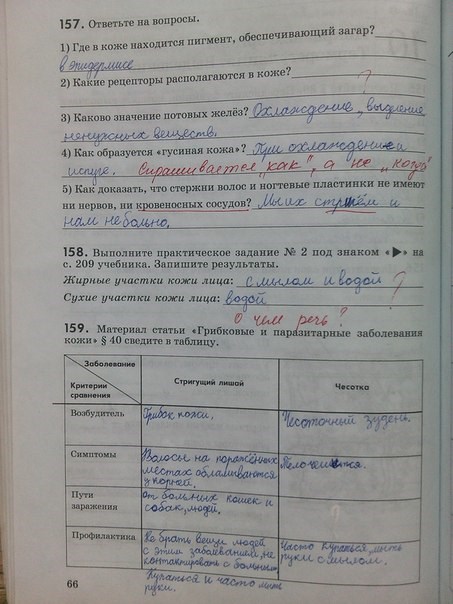 157. Ответьте на вопросы.
1) Где в коже находится пигмент, обеспечивающий загар?
в эпидермисе
2) Какие рецепторы располагаются в коже?
?
3) Каково значение потовых желёз? Охлаждение, выделение
ненужных веществ.
4) Как образуется «гусиная кожа»? При охлаждении и
испуге. Спрашивается „как", а не „когда"
5) Как доказать, что стержни волос и ногтевые пластинки не имеют
ни нервов, ни кровеносных сосудов? Мы их стрижём и
нам не больно.
158. Выполните практическое задание № 2 под знаком «►» на
с. 209 учебника. Запишите результаты.
Жирные участки кожи лица: с мылом и водой ?
Сухие участки кожи лица: водой
О чем речь?
159. Материал статьи «Грибковые и паразитарные заболевания
кожи» § 40 сведите в таблицу.
Заболевание
Критерии
сравнения
Стригущий лишай
Чесотка
Возбудитель
Грибок кожи.
Чесоточный зудень.
Симптомы
Волосы на поражённых
местах обламываются
у корней.
Тело чешется.
Пути
заражения
от больных кошек и
собак, людей.
Профилактика
Не брать вещи людей
с этим заболеванием, не
контактировать с больным,
Купаться и часто мыть
руки.
Часто купаться, мыть
руки с мылом.
66